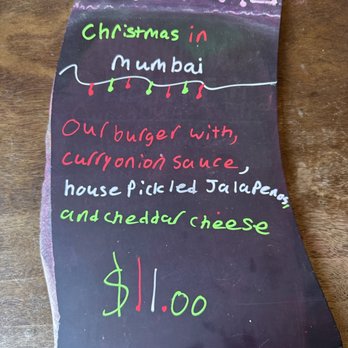 Christmas in
Mumbai
Our burger with,
curry onion sauce,
house Pickled Jalapenos,
and cheddar cheese
$11.00